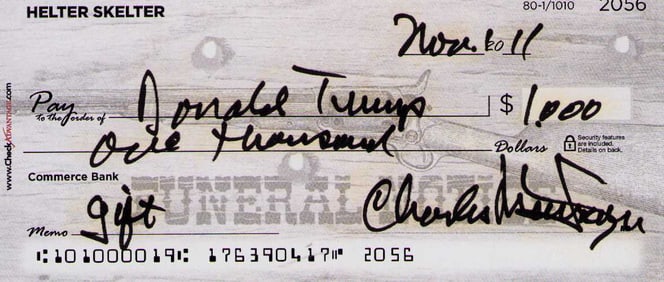 HELTER SKELTER
80-1/1010 2056
Nov. 2011
Pay to the order of Donald Trump $ 1,000
one thousand Dollars
Security features are included. Details on back.
www.CheckAdvantage.com
Commerce Bank
FUNERAL NOTICE
Memo gift Charles
⑆101000019⑆ 176390417⑈ 2056